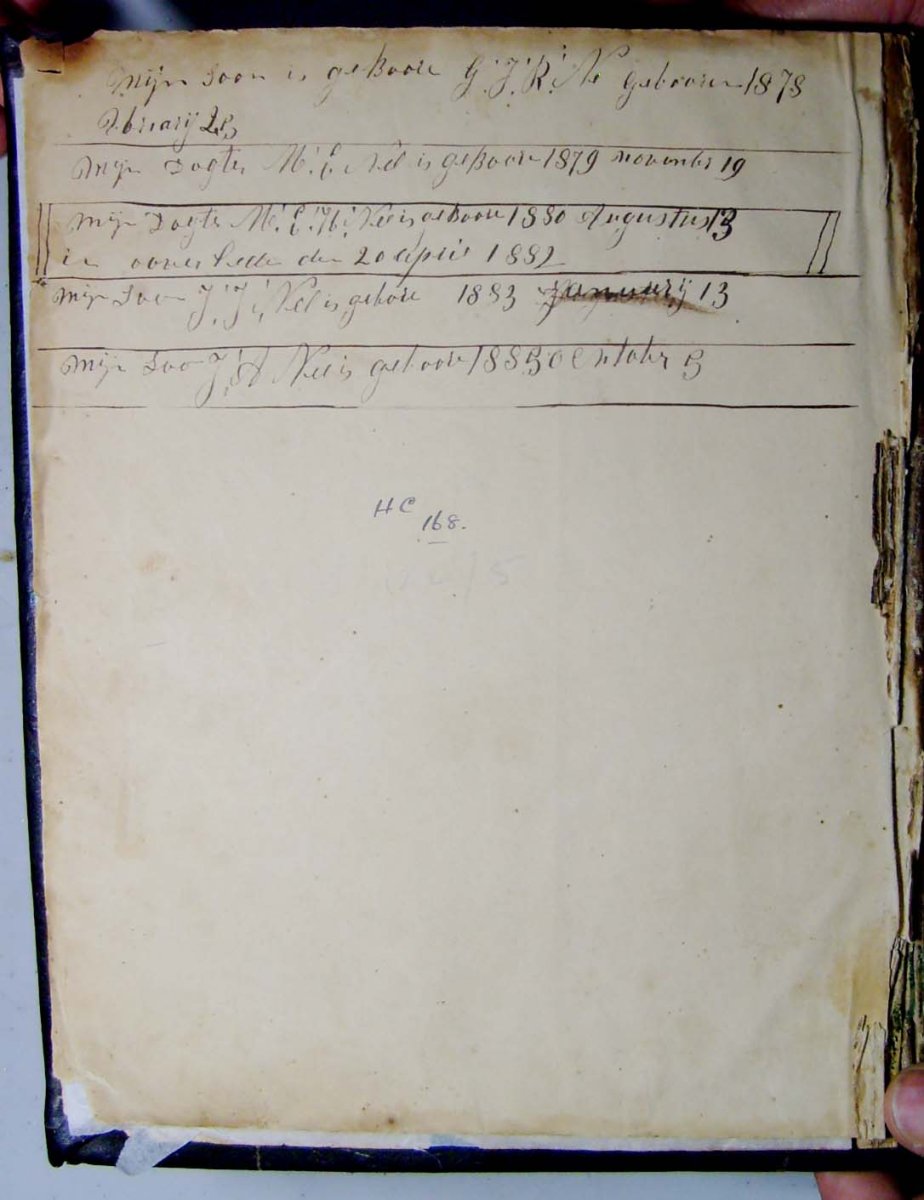 Mijn Soon is geBoore G. J. R. Ne Geboore 1878
Mijn Dogter M. E. Nel is geBoore 1879 november 19
Mijn Dogter M. E. H. Nel is geBoore 1880 Augustus 13
overlede den 20 april 1882
Mijn Soon J. J. Nel is gebore 1883 Januarij 13
Mijn Soo J. A Nel is geboore
HC
168.